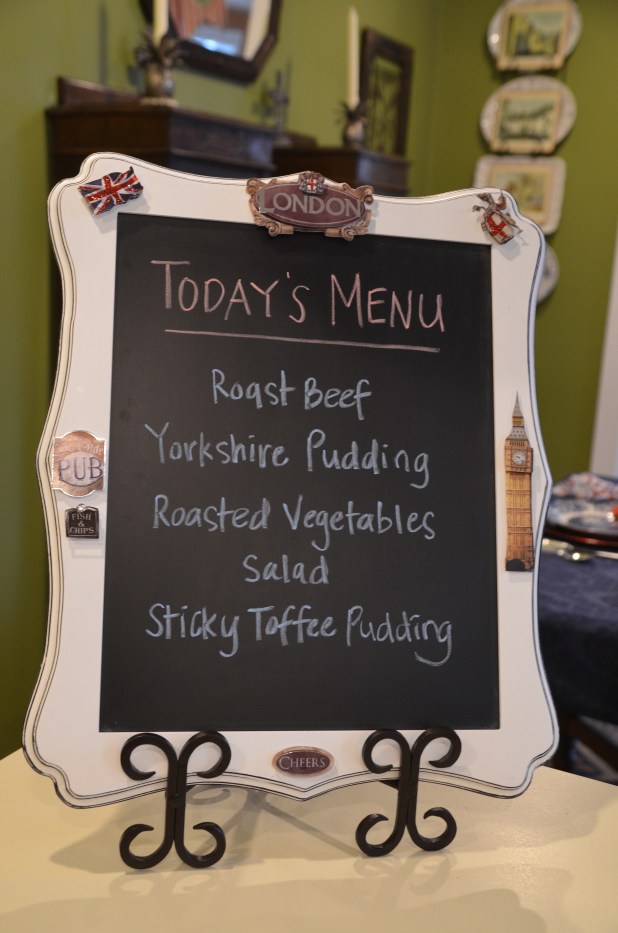 LONDON
TODAY'S MENU
Roast Beef
Yorkshire Pudding
PUB
Roasted Vegetables
FISH
&
CHIPS
Salad
Sticky Toffee Pudding
CHEERS